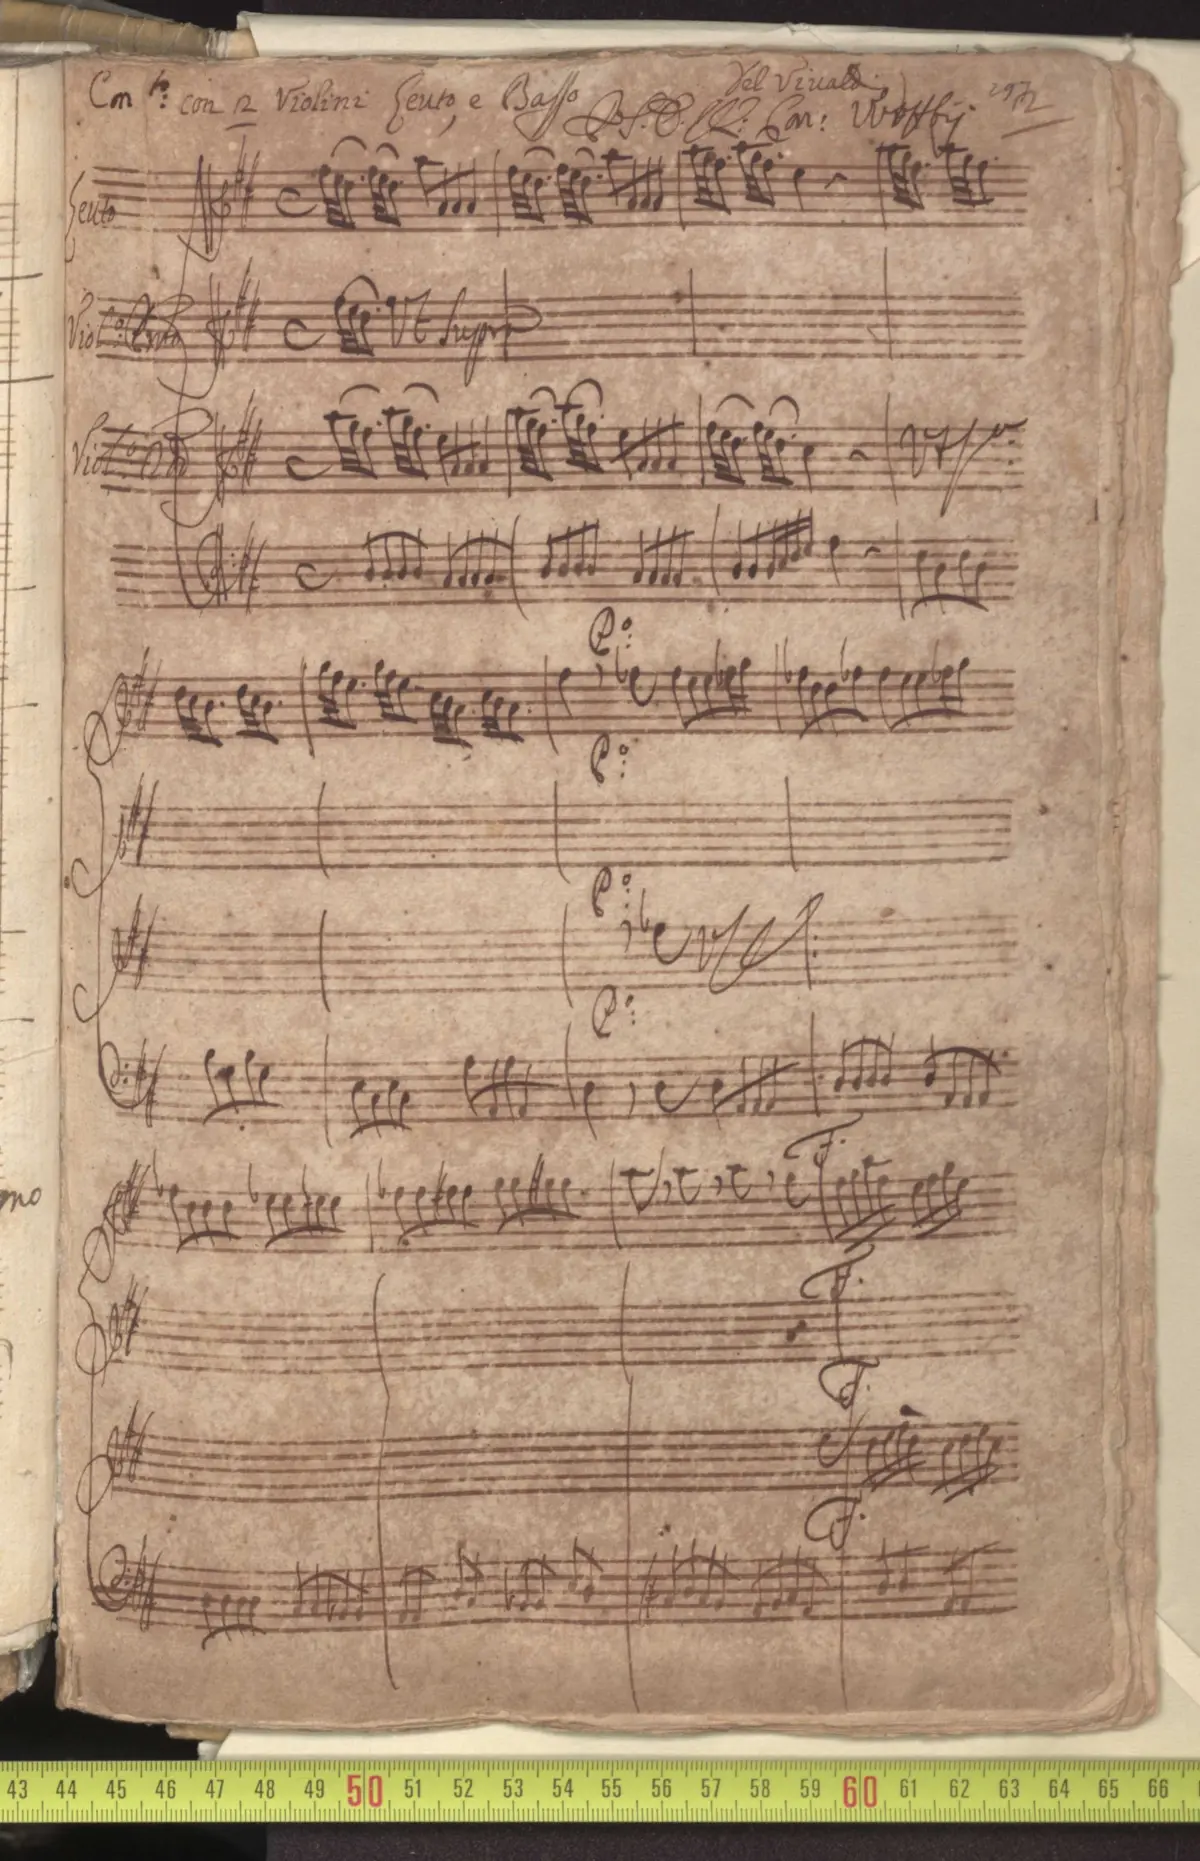 Del Vivaldi
Con.to: con 2 Violini Leuto, e Basso P.S.E. Il: Con: Wrttby 297
Leuto
Viol.o Pmo
Ut supra
Viol.o 2do
P.o:
P.o:
P.o:
P.o:
F.
F.
F.
F.
mo
43 44 45 46 47 48 49 50 51 52 53 54 55 56 57 58 59 60 61 62 63 64 65 66